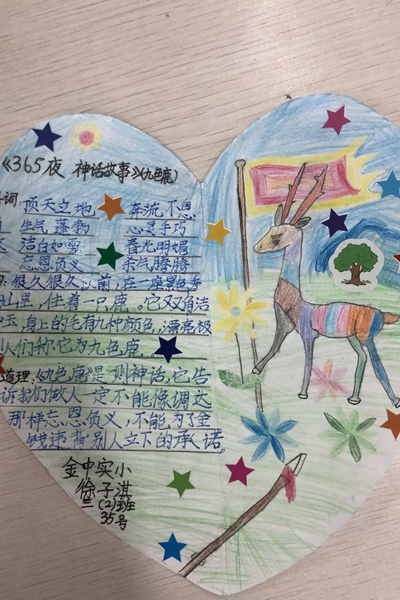 《365夜 神话故事》(九色鹿)
词 顶天立地 奔流不息
生气蓬勃 心灵手巧
洁白如雪 春光明媚
忘恩负义 杀气腾腾
很久很久以前,在一座景色秀
山里,住着一只鹿。它双角洁
身上的毛有九种颜色,漂亮极
人们称它为九色鹿。
道理:《九色鹿》是一则神话,它告
诉我们做人一定不能像调达
那样忘恩负义,不能为了金
钱违背别人立下的承诺。
金中实小
徐子淇
三(2)班
35号